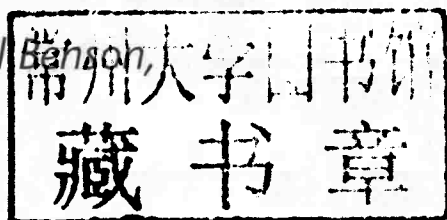 l Benson,
常州大学图书馆
藏书章